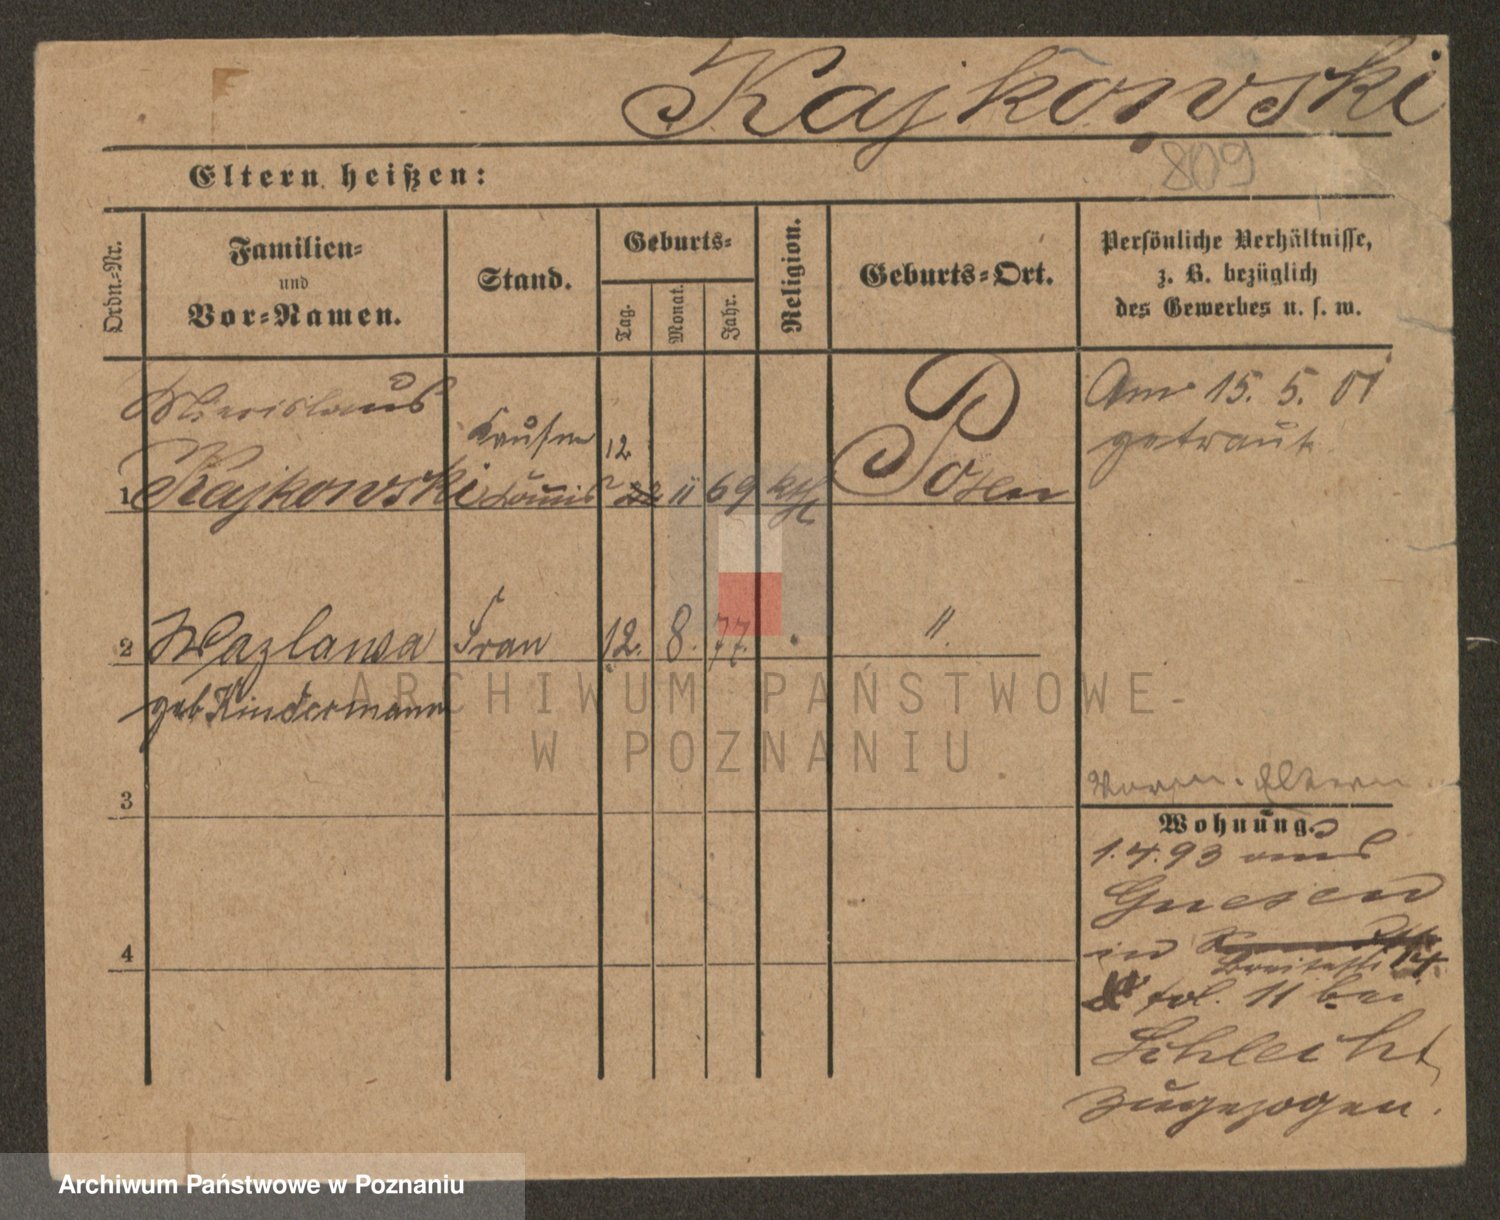 Kajkowski
809
Eltern heißen:
Ordn.=Nr.
Familien=
und
Vor=Namen.
Stand.
Geburts=
Tag.
Monat.
Jahr.
Religion.
Geburts=Ort.
Persönliche Verhältnisse,
z. B. bezüglich
des Gewerbes u. s. w.
Mieislaus
Kaufm
12.
Am 15. 5. 01
getraut
1 Kajkowski Commis 22 11 69 kth Posen
2 Wazlawa Frau 12. 8. 77. " "
geb Kindermann
ARCHIWUM PAŃSTWOWE
W POZNANIU
3
Eltern
Wohnung.
1.4.93 aus
Gnesen
4
in
Breitestr 14
fol. 11 bei
Schlecht
zugezogen.
Archiwum Państwowe w Poznaniu